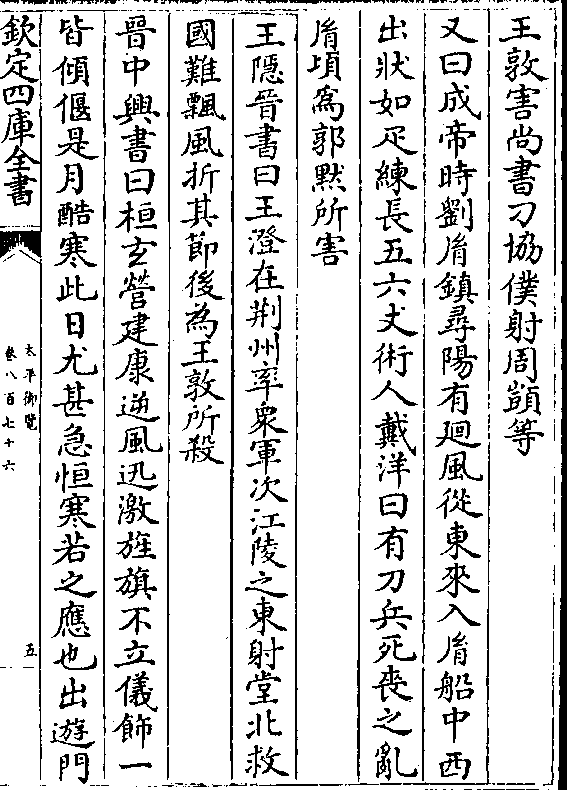 王敦害尚書刁協僕射周顗等
又曰成帝時劉胤鎮尋陽有廻風從東來入胤船中西
出狀如疋練長五六丈術人戴洋曰有刀兵死喪之亂
胤頃為郭默所害
王隱晉書曰王澄在荆州率衆軍次江陵之東射堂北救
國難飄風折其節後為王敦所殺
晉中興書曰桓玄營建康逆風迅激旌旗不立儀飾一
皆傾偃是月酷寒此日尤甚急恒寒若之應也出遊門
欽定四庫全書
太平御覽
卷八百七十六
五